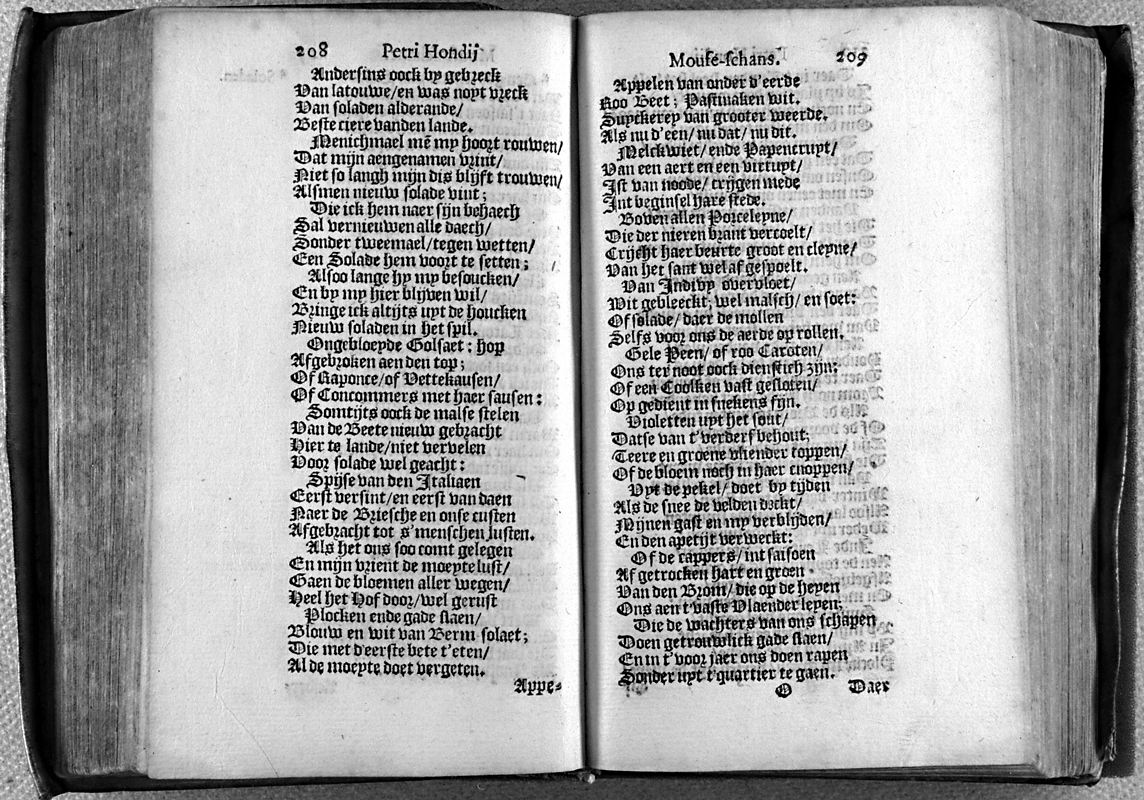 208 Petri Hondij
Andersins oock by gebreck
Van latouwe/en was noyt vreck
Van soladen alderande/
Beste ciere vanden lande.
Menichmael mē my hoort rouwen/
Dat mijn aengenamen vrint/
Niet so langh mijn dis blijft trouwen/
Alsmen nieuw solade vint;
Die ick hem naer sijn behaech
Sal vernieuwen alle daech/
Sonder tweemael/tegen wetten/
Een Solade hem voort te setten;
Alsoo lange hy my besoucken/
En by my hier blijven wil/
Bringe ick altijts uyt de houcken
Nieuw soladen in het spil.
Ongebloeyde Golsaet: hop
Afgebroken aen den top;
Of Raponce/of Vettekausen/
Of Concommers met haer sausen:
Somtijts oock de malse stelen
Van de Beete nieuw gebracht
Hier te lande/niet vervelen
Voor solade wel geacht:
Spijse van den Italiaen
Eerst versint/en eerst van daen
Naer de Briesche en onse custen
Afgebracht tot s'menschen lusten.
Als het ons soo comt gelegen
En mijn vrient de moeyte lust/
Gaen de bloemen aller wegen/
Heel het Hof door/wel gerust
Plocken ende gade slaen/
Blouw en wit van Berm solaet;
Die met d'eerste bete t'eten/
Al de moeyte doet vergeten.
Appe-
Mouse-schans. 209
Appelen van onder d'eerde
Roo Beet; Pastinaken wit.
Suyckerey van grooter weerde.
Als nu d'een/ nu dat/ nu dit.
Melckwiet/ ende Papencruyt/
Van een aert en een virtuyt/
Ist van noode/ crijgen mede
Int beginsel hare stede.
Boven allen Porceleyne/
Die der nieren brant vercoelt/
Crijcht haer beurte groot en cleyne/
Van het sant wel af gespoelt.
Van Indivy overvloet/
Wit gebleeckt; wel malsch/ en soet:
Of solade/ daer de mollen
Selfs voor ons de aerde op rollen.
Gele Peen/ of roo Caroten/
Ons ter noot oock dienstich zijn:
Of een Coolken vast gesloten/
Op gedient in sneKens fijn.
Violetten uyt het sout/
Datse van t'verderf behout;
Teere en groene vliender toppen/
Of de bloem noch in haer cnoppen/
Uyt de pekel/ doet by tijden
Als de snee de velden deckt/
Mijnen gast en my verblijden/
En den apetijt verweckt:
Of de cappers/ int saisoen
Af getrocken hart en groen
Van den Brom/ die op de heyen
Ons aen t'vaste Vlaender leyen;
Die de wachters van ons schapen
Doen getrouwlick gade slaen/
En in t'voor jaer ons doen rapen
Sonder uyt t'quartier te gaen.
O Daer